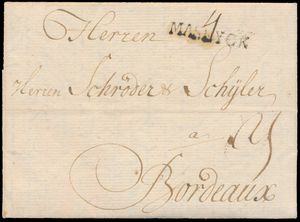 Herren 4
MASEYCK
Herren Schröder & Schÿler
a
Bordeaux